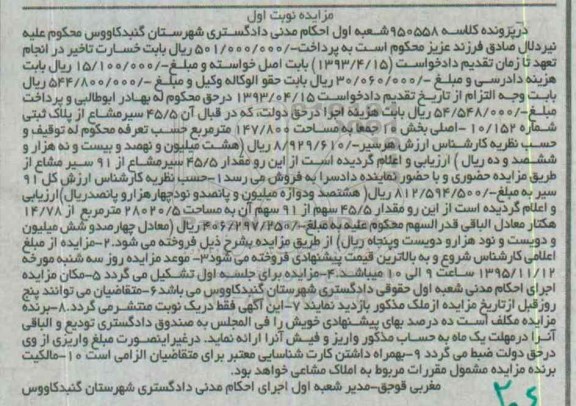 مزایده نوبت اول
درپرونده کلاسه ۹۵۰۵۵۸شعبه اول احکام مدنی دادگستری شهرستان گنبدکاووس محکوم علیه
نیردلال صادق فرزند عزیز محکوم است به پرداخت-/۵۰۱/۰۰۰/۰۰۰ ریال بابت خسارت تاخیر در انجام
تعهد تا زمان تقدیم دادخواست (۱۳۹۳/۴/۱۵) بابت اصل خواسته و مبلغ-/۱۵/۱۰۰/۰۰۰ ریال بابت
هزینه دادرسی و مبلغ -/۳۰/۰۶۰/۰۰۰ ریال بابت حقو الوکاله وکیل و مبلغ -/۵۴۴/۸۰۰/۰۰۰ ریال
بابت وجه التزام از تاریخ تقدیم دادخواست ۱۳۹۳/۰۴/۱۵ درحق محکوم له بهادر ابوطالبی و پرداخت
مبلغ-/۵۴/۵۴۸/۰۰۰ ریال بابت هزینه اجرا درحق دولت، که در قبال آن ۴۵/۵ سیرمشاع از پلاک ثبتی
شماره ۱۰/۱۵۲ -اصلی بخش ۱۰ جمعا به مساحت ۱۴۷/۸۰۰ مترمربع حسب تعرفه محکوم له توقیف و
حسب نظریه کارشناس ارزش هرسیر-/۸/۹۲۹/۶۱۰ ریال (هشت میلیون و نهصد و بیست و نه هزار و
ششصد و ده ریال ) ارزیابی و اعلام گردیده است از این رو مقدار ۴۵/۵ سیرمشاع از ۹۱ سیر مشاع از
طریق مزایده حضوری و با حضور نماینده دادسرا به فروش می رسد۱-حسب نظریه کارشناس ارزش کل ۹۱
سیر به مبلغ-/۸۱۲/۵۹۴/۵۰۰ ریال( هشتصد ودوازه میلیون و پانصدو نودچهارهزارو پانصدریال)ارزیابی
و اعلام گردیده است از این رو مقدار ۴۵/۵ سهم از ۹۱ سهم آن به مساحت ۲۸۰۲۰/۵ مترمربع از ۱۴/۷۸
هکتار معادل الباقی قدر السهم محکوم علیه به مبلغ-/۴۰۶/۲۹۷/۲۵۰ ریال (معادل چهارصدو شش میلیون
و دویست و نود هزارو دویست وپنجاه ریال) از طریق مزایده بشرح ذیل فروخته می شود.۲-مزایده از مبلغ
اعلامی کارشناس شروع و به بالاترین قیمت پیشنهادی فروخته می شود۳- موعد مزایده روز سه شنبه مورخه
۱۳۹۵/۱۱/۱۲ ساعت ۹ الی ۱۰ میباشد.۴-مزایده برای جلسه اول تشکیل می گردد ۵-مکان مزایده
اجرای احکام مدنی شعبه اول حقوقی دادگستری شهرستان گنبدکاووس می باشد۶-متقاضیان می توانند پنج
روز قبل ازتاریخ مزایده ازملک مذکور بازدید نمایند ۷-این آگهی فقط دریک نوبت منتشرمی گردد.۸-برنده
مزایده مکلف است ده درصد بهای پیشنهادی خویش را فی المجلس به صندوق دادگستری تودیع و الباقی
آنرا درمهلت یک ماه به حساب مذکور واریز و فیش آنرا ارائه نماید. درغیراینصورت مبلغ واریزی از وی
درحق دولت ضبط می گردد ۹-بهمراه داشتن کارت شناسایی معتبر برای متقاضیان الزامی است ۱۰-مالکیت
برنده مزایده مشمول مقررات مربوط به املاک مشاعی خواهد بود.
مغربی قوجق-مدیر شعبه اول اجرای احکام مدنی دادگستری شهرستان گنبدکاووس